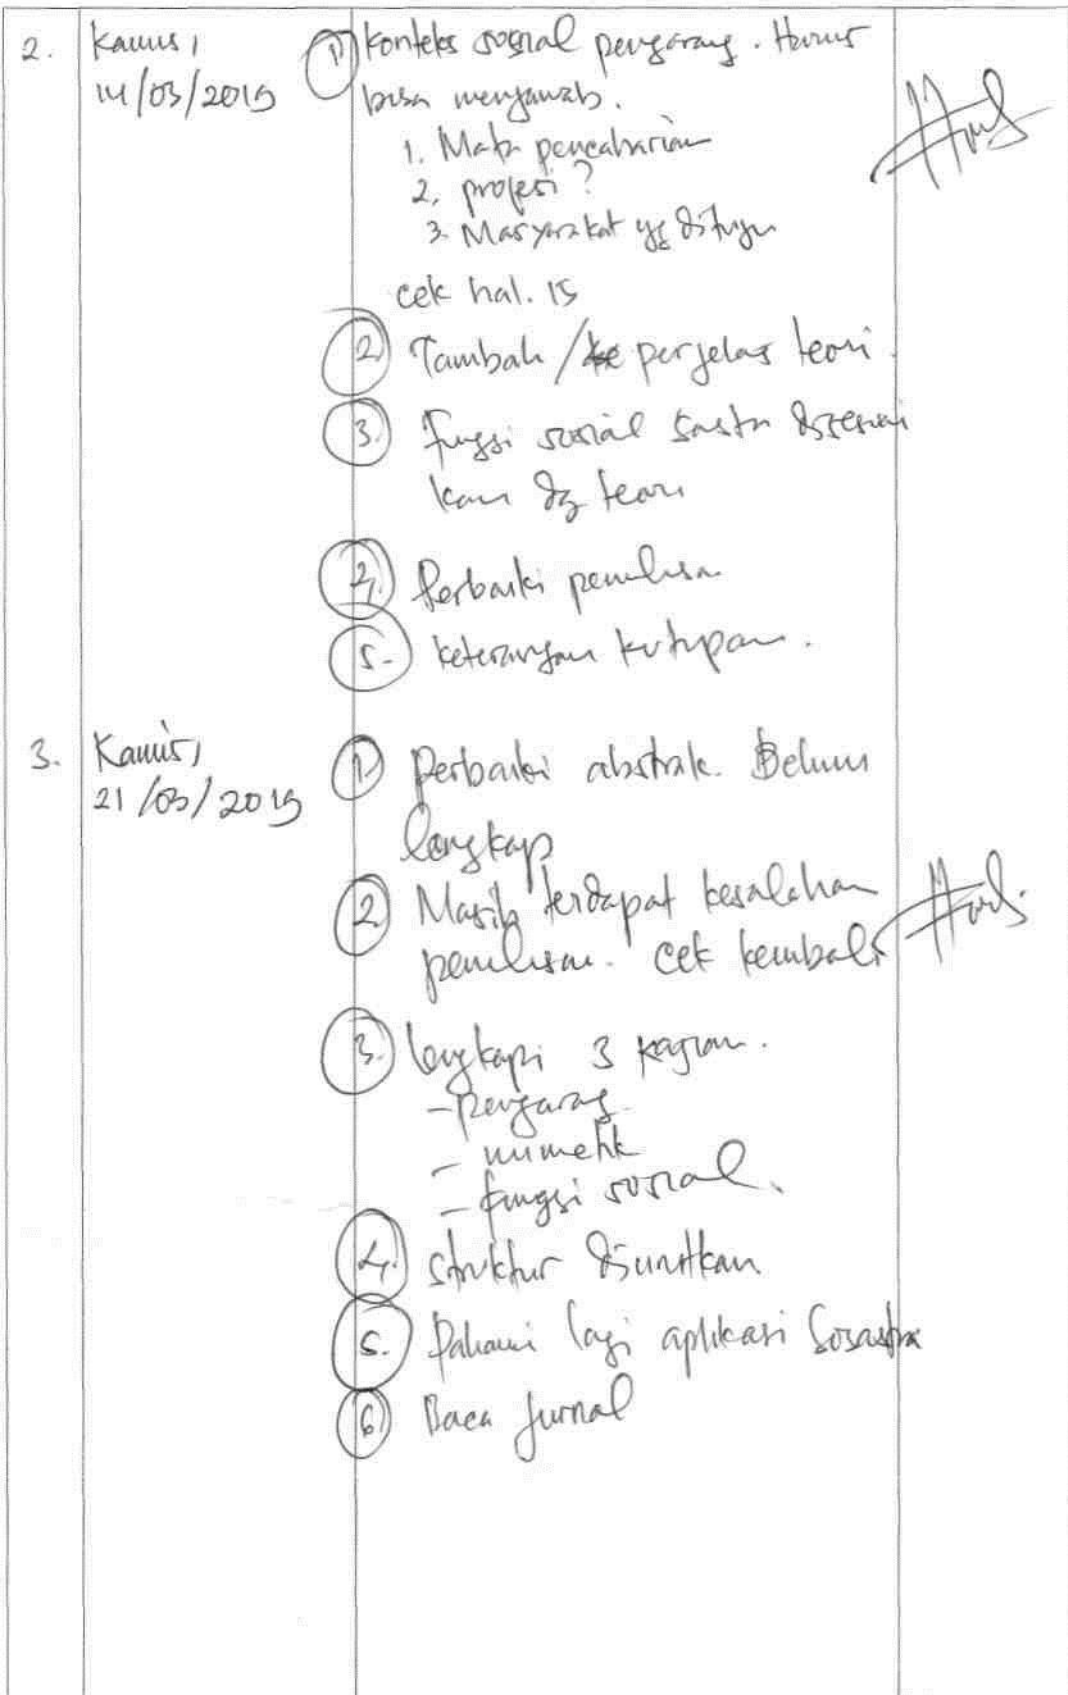 2. Kamis, ① Konteks sosial pengarang. Harus
14/03/2019 bisa menjawab.
1. Mata pencaharian
2. profesi?
3. Masyarakat yg dituju
cek hal. 15
② Tambah / perjelas teori.
③ fungsi sosial sastra disesuai
kan dg teori
④ Perbaiki penulisan
⑤ keterangan kutipan.
3. Kamis, ① Perbaiki abstrak. Belum
21/03/2019
lengkap
② Masih terdapat kesalahan
penulisan. cek kembali
③ lengkapi 3 kajian.
- pengarang
- mimetik
- fungsi sosial.
④ struktur diurutkan
⑤ Pahami lagi aplikasi Sosastra
⑥ Baca jurnal